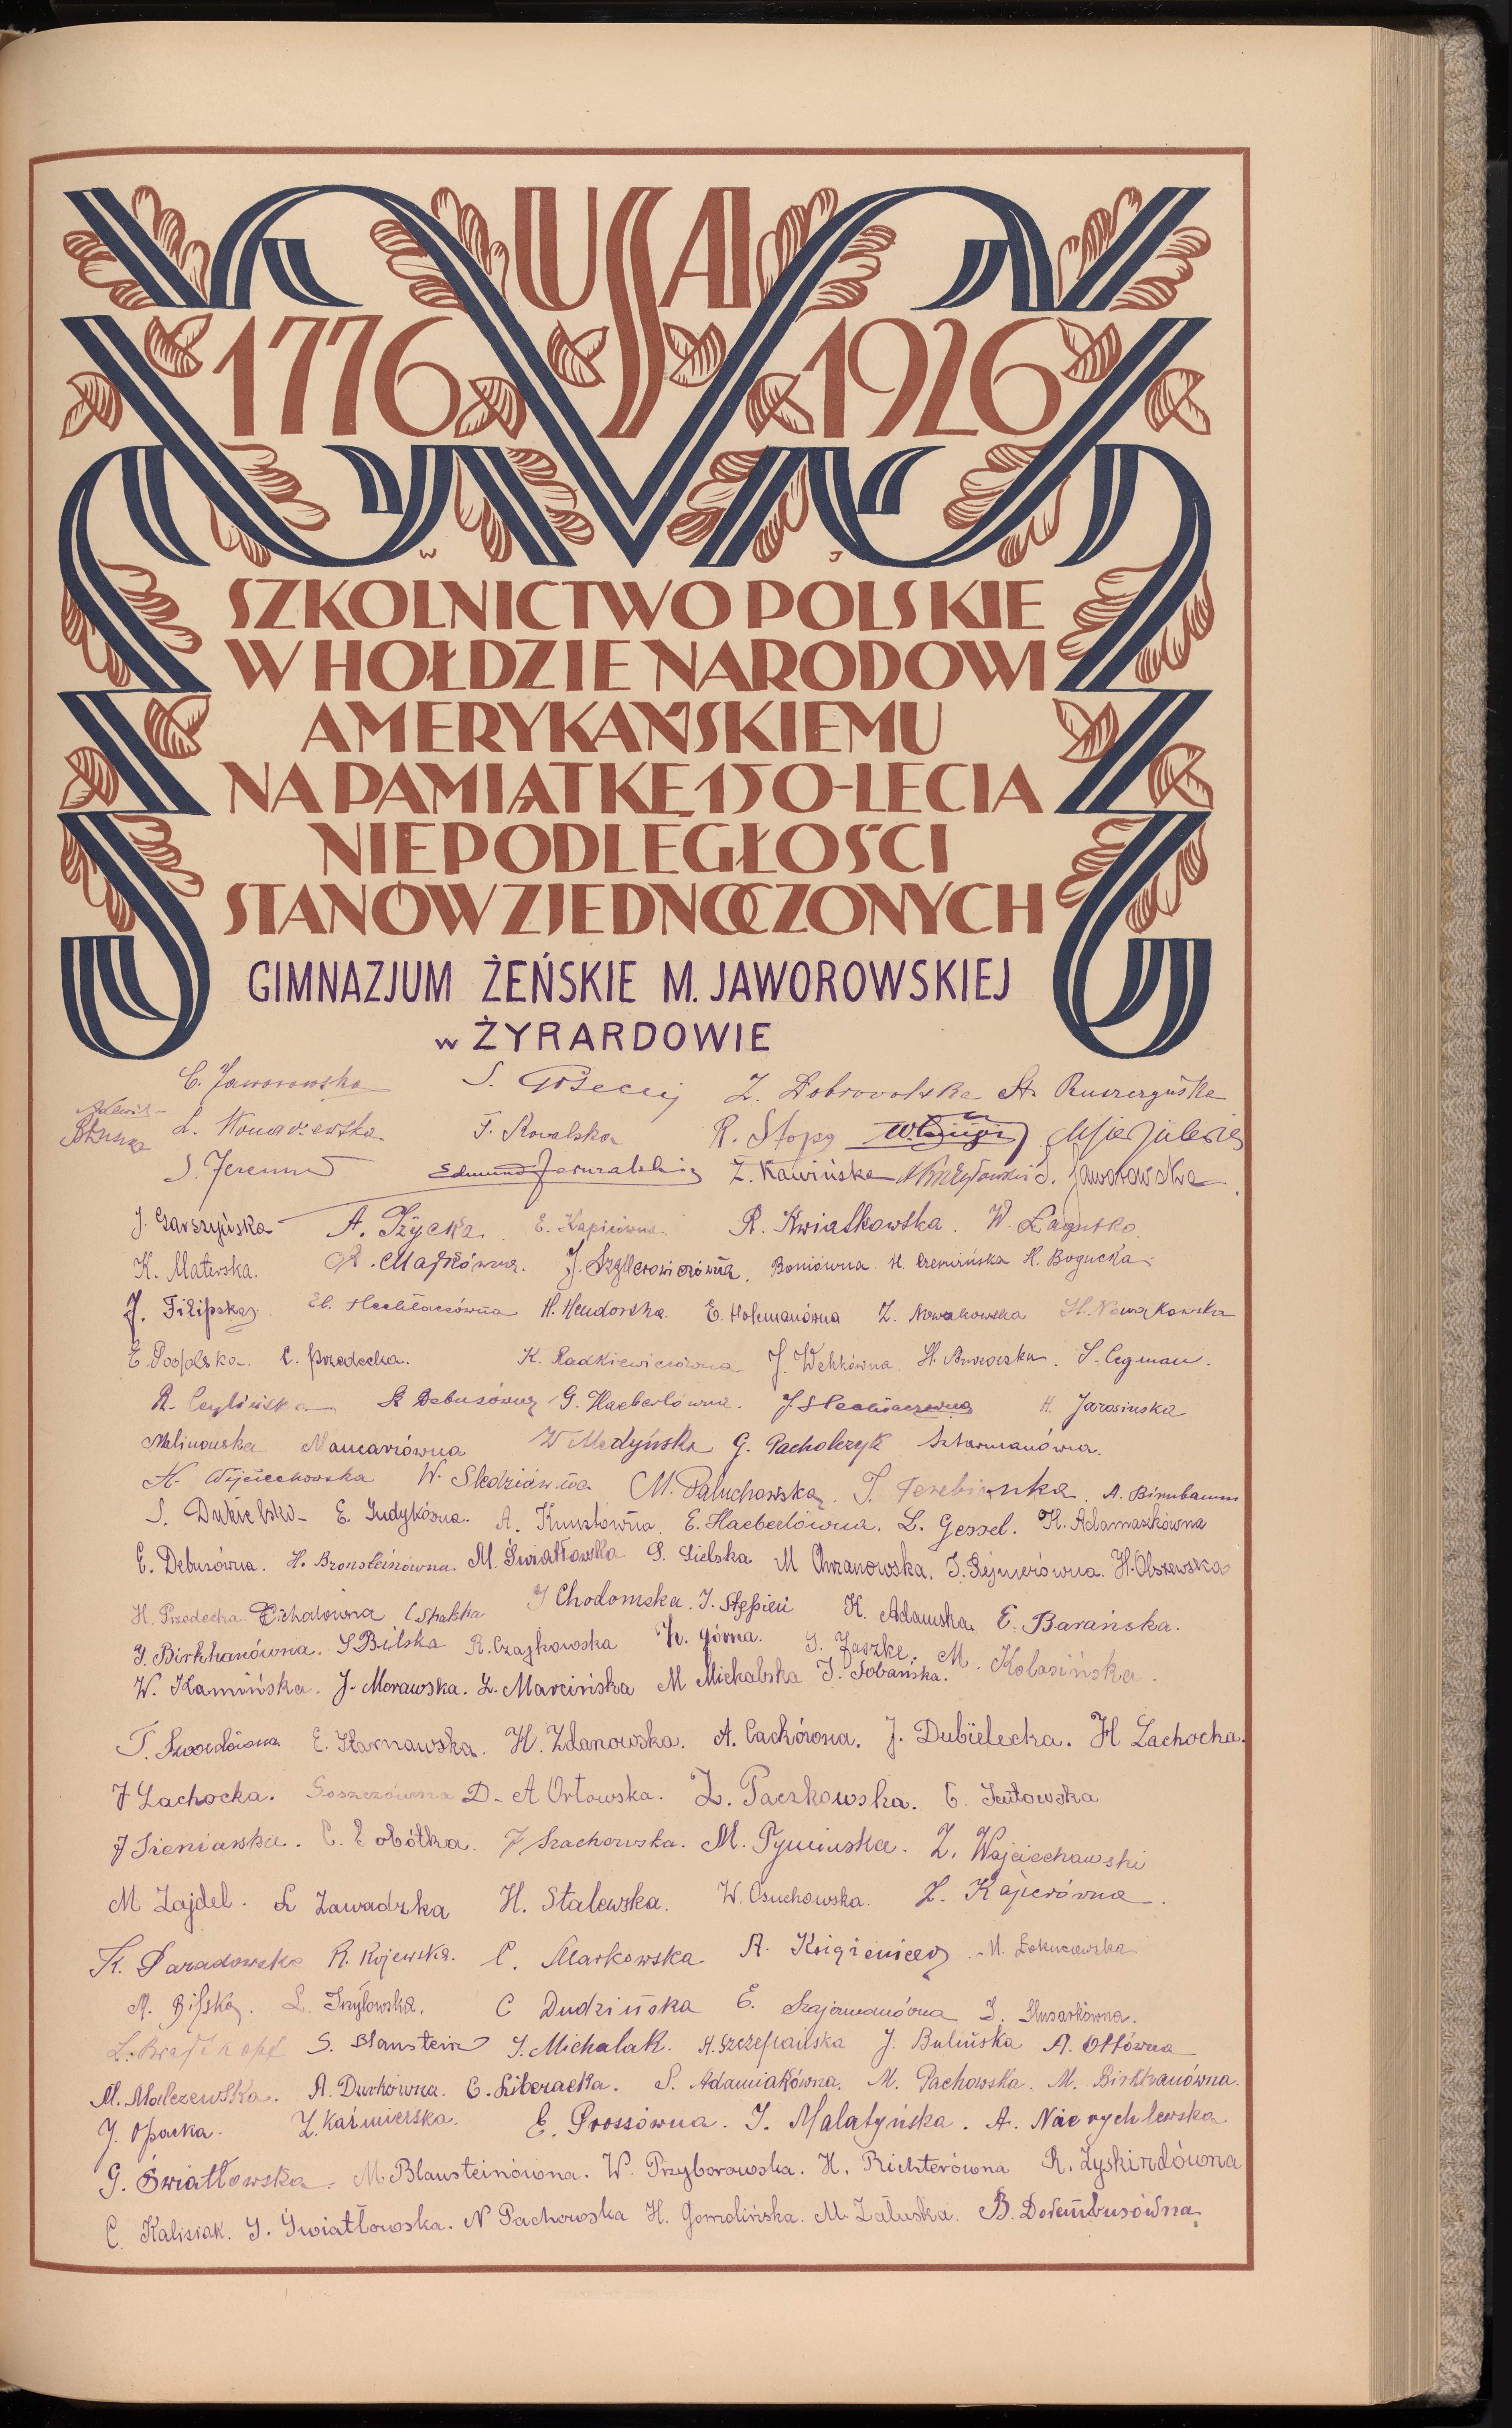 USA
1776 1926
W J
SZKOLNICTWO POLSKIE
W HOŁDZIE NARODOWI
AMERYKAŃSKIEMU
NA PAMIĄTKĘ 150-LECIA
NIEPODLEGŁOŚCI
STANÓW ZJEDNOCZONYCH
GIMNAZJUM ŻEŃSKIE M. JAWOROWSKIEJ
w ŻYRARDOWIE
C. Jaworowska S. Z. Dobrowolska St.
F. Kowalska R. Stopa
Edmund Z. Kawińska S. Jaworowska
J. Garszyńska A. Życka R. Kwiatkowska. W. Łagutko
K. Materska. Boniówna H. Bogucka.
J. Filipska H. Hendorska. E. Hofmanówna Z. Nowakowska St. Nowakowska
E. Podolska. C. Przedecka. K. Radkiewiczówna S. Cegman.
S. Debusówna G. Haeberlówna. H. Jarosińska
Malinowska W Medyńska G. Pacholczyk
K. Wojciechowska W. Śledziówna M. Paluchowska. A. Birnbaum
E. Judykówna. A. Kunstówna. E. Haeberlówna. L. Gessel. K. Adamaszkówna
E. Debusówna. H. Bronsteinówna. M. Światłowska S. Sielska M Chrzanowska. H. Olszewska
H. Przedecka. Cichalówna J Chodomska. J. Stępień K. Adamska. E. Barańska.
J. Birkhanówna. S Bilska R. Czajkowska H. Górna. J. Jaszke. M. Kolasińska.
W. Kamińska. J. Morawska. Z. Marcińska M Michalska J. Sobańska.
E. Karnawska. H. Zdanowska. A. Cackówna. J. Dubielecka. H Lachocka.
J Lachocka. Soszczówna D. A Orłowska. Z. Paczkowska. C. Jutowska
J Sieniawska. C. Sobótka. J Szachowska. M. Tymińska. Z. Wojciechowski
M Zajdel. L Zawadzka H. Stalewska. W. Osuchowska. Z. Kajerówna.
K. Paradowska R. Kojewska. C. Markowska A. M. Łokuciewska
A. Bilska. L. Trzylowska. C Dudzińska E. Szajermanówna S. Husarkówna.
S. Blaustein J. Michalak. A. Szczepańska J. Bulińska A. Ottówna
M. Malczewska. A. Durkówna. C. Liberacka. S. Adamiakówna. M. Pachowska. M. Birkhanówna.
J. Opacka. Z. Kaźmierska. E. Prossówna. J. Malatyńska. A. Nierychlewska
G. Światłowska. M Blausteinówna. W. Przyborowska. H. Richterówna R. Zyskindówna
C. Kalisiak. J. Światłowska. N Pachowska H. Gomolińska. M. Załuska. B. Dorembusówna.